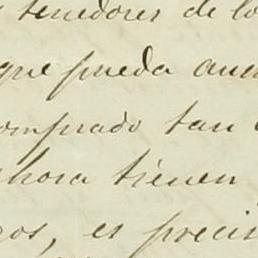 tenedores de lo
que pueda aum
comprado tan
ahora tienen
ros, es precis